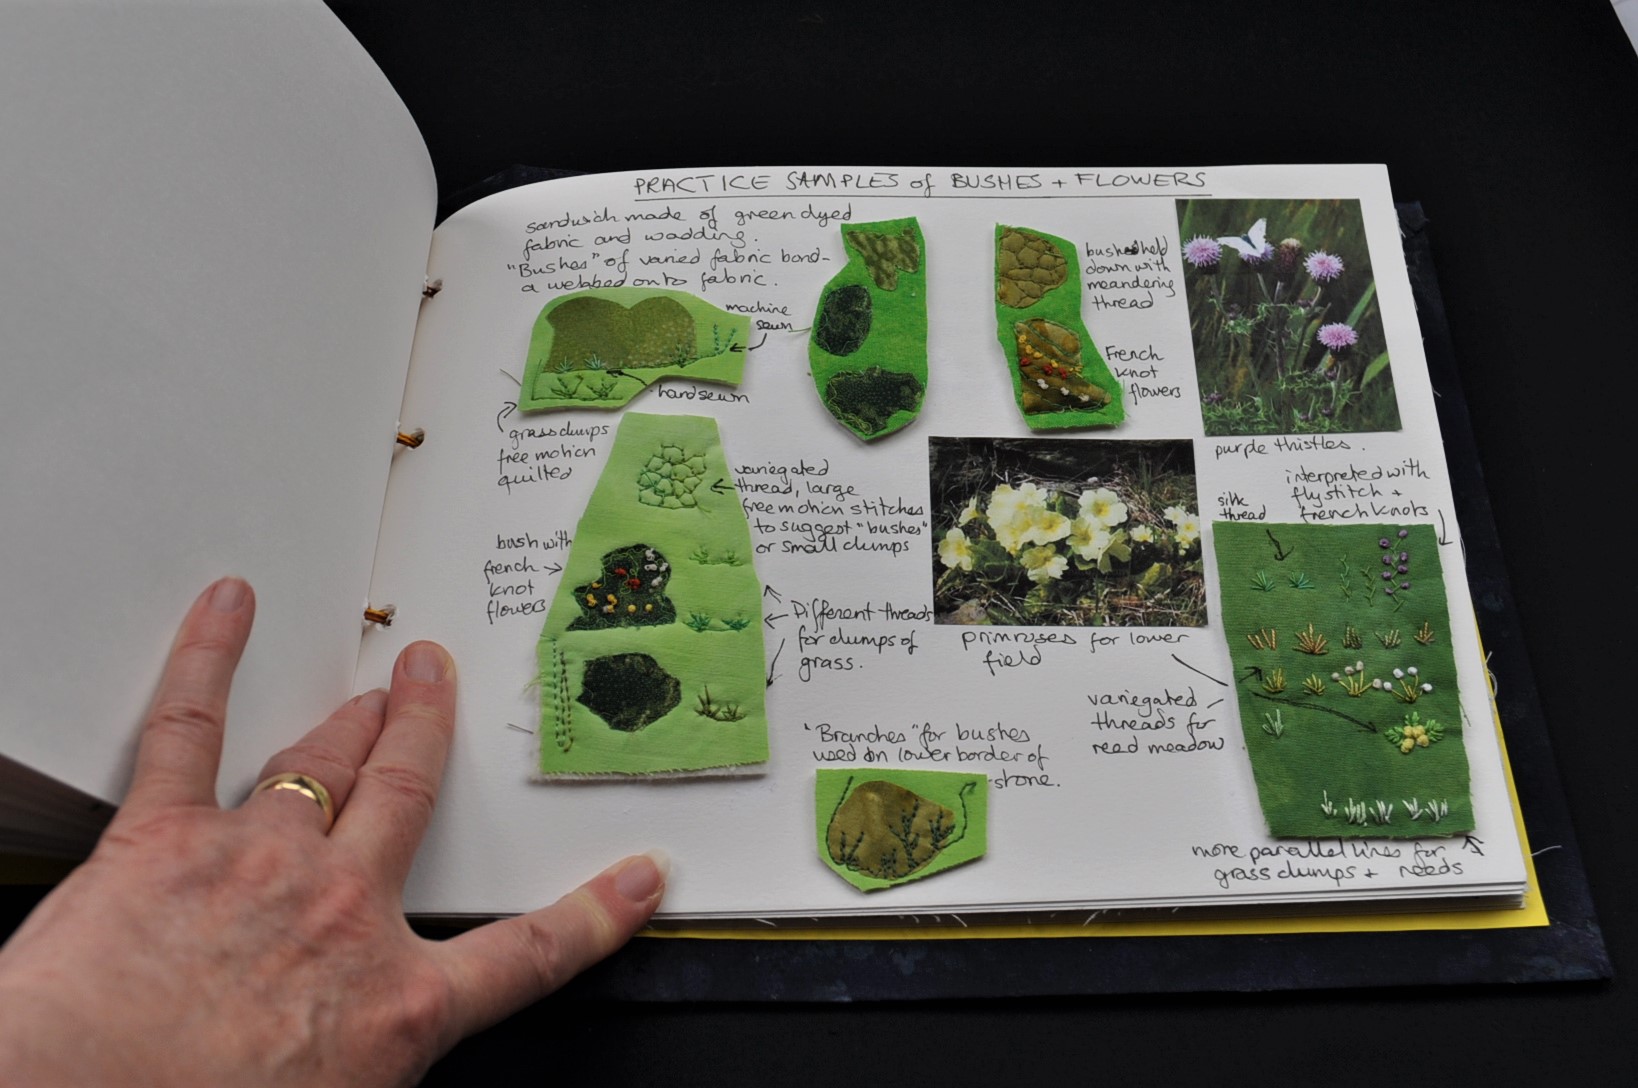 PRACTICE SAMPLES of BUSHES + FLOWERS
sandwich made of green dyed
fabric and wadding.
"Bushes" of varied fabric bond-
a webbed onto fabric.
machine
sewn
handsewn
grass clumps
free motion
quilted
bushes held
down with
meandering
thread
French
knot
flowers
purple thistles.
interpreted with
fly stitch +
french knots
silk
thread
variegated
thread, large
free motion stitches
to suggest "bushes"
or small clumps
bush with
french
knot
flowers
Different threads
for clumps of
grass.
primroses for lower
field
variegated
threads for
reed meadow
"Branches" for bushes
used on lower border of
stone.
more parallel lines for
grass clumps + reeds